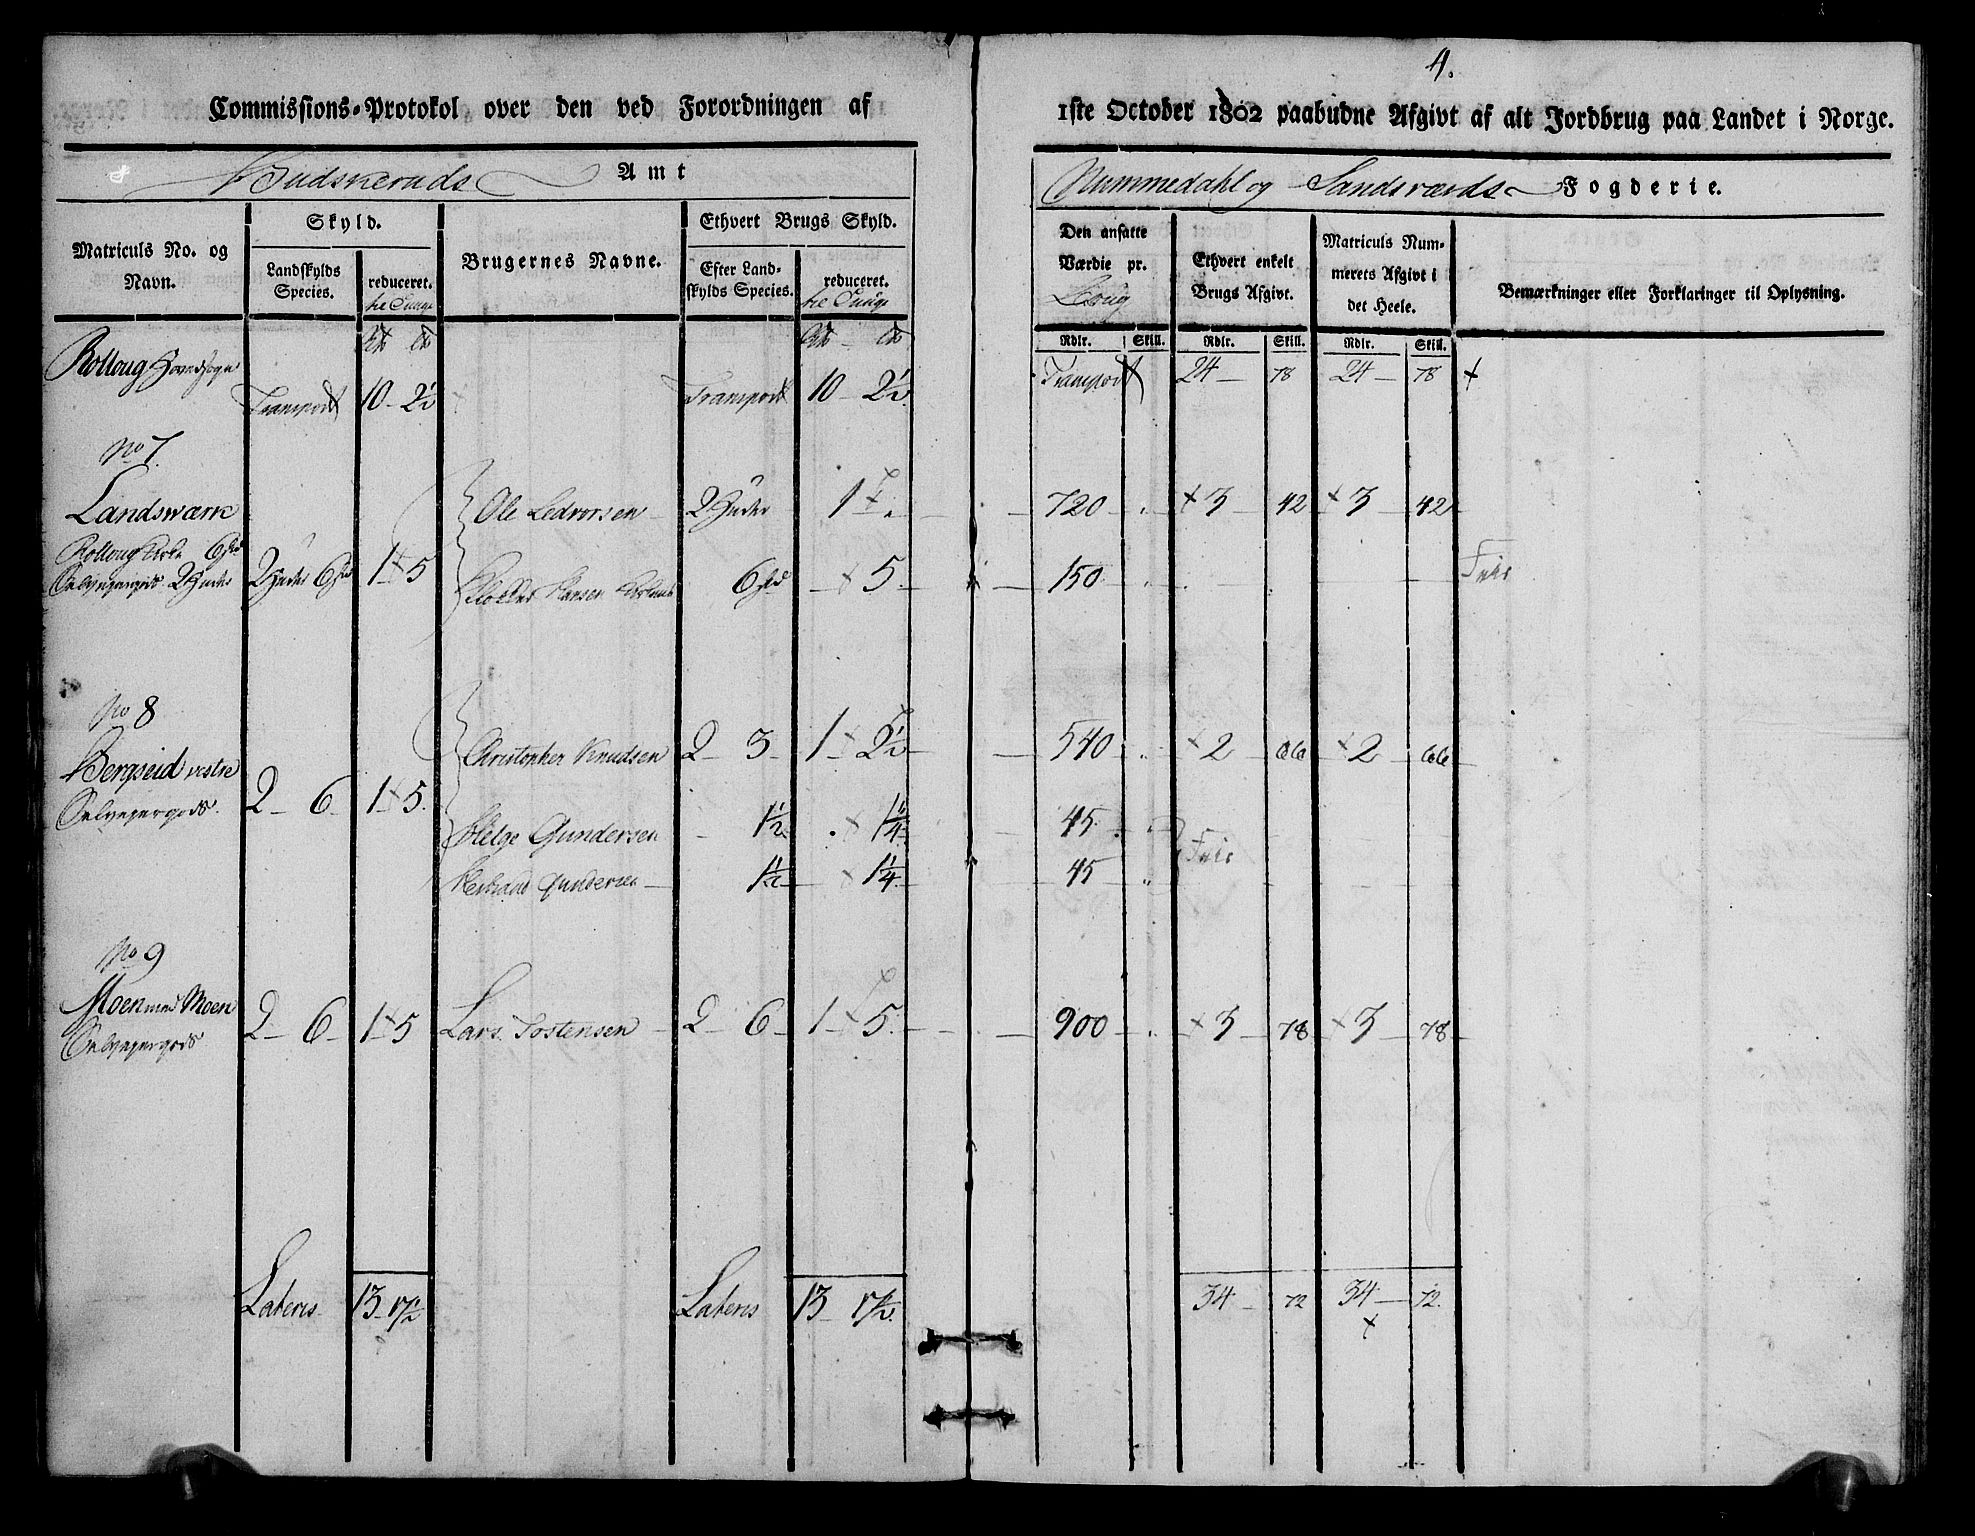 4.
Commissions-Protokol over den ved Forordningen af 1ste October 1802 paabudne Afgivt af alt Jordbrug paa Landet i Norge.
Budskeruds Amt
Nummedahl og Sandsværds Fogderie.
Matriculs No. og Navn.
Skyld.
Landskylds Species.
reduceret.
Brugernes Navne.
Ethvert Brugs Skyld.
Efter Landskylds Species.
reduceret.
Den ansatte Værdie pr.
Ethvert enkelt Brugs Afgivt.
Matriculs Nummerets Afgivt i det Heele.
Bemærkninger eller Forklaringer til Oplysning.
Rdlr. Skill. Rdlr. Skill. Rdlr. Skill.
Rolloug Hovedsogn
Transport 10 - 2½ Transport 10 - 2½ Transport 24 - 78 24 - 78 +
No 7
Landsværk Ole Ledvorsen 2 Huder 1 720 3 42 3 42
Rolloug Kirke 6
Selvejergods 2 Huder 2 Huder 6 1 5 Hansen 6 5 150 Frie
No 8
Bergseid vestre Christopher Knudsen 2 - 3 - 1 2½ 540 2 66 2 66
Selvejergods. 2 - 6 1 5. Helge Gundersen 1½ 1¼ 45. Frie
Gundersen 1½ 1¼ 45
No 9
Moen med Moen
Selvejergods 2 - 6 1 5 Lars Tostensen 2 - 6 - 1 5. 900 3 78 3 78
Lateris 13 - 17½ Lateris 13 - 17½ 34 - 72 34 - 72.